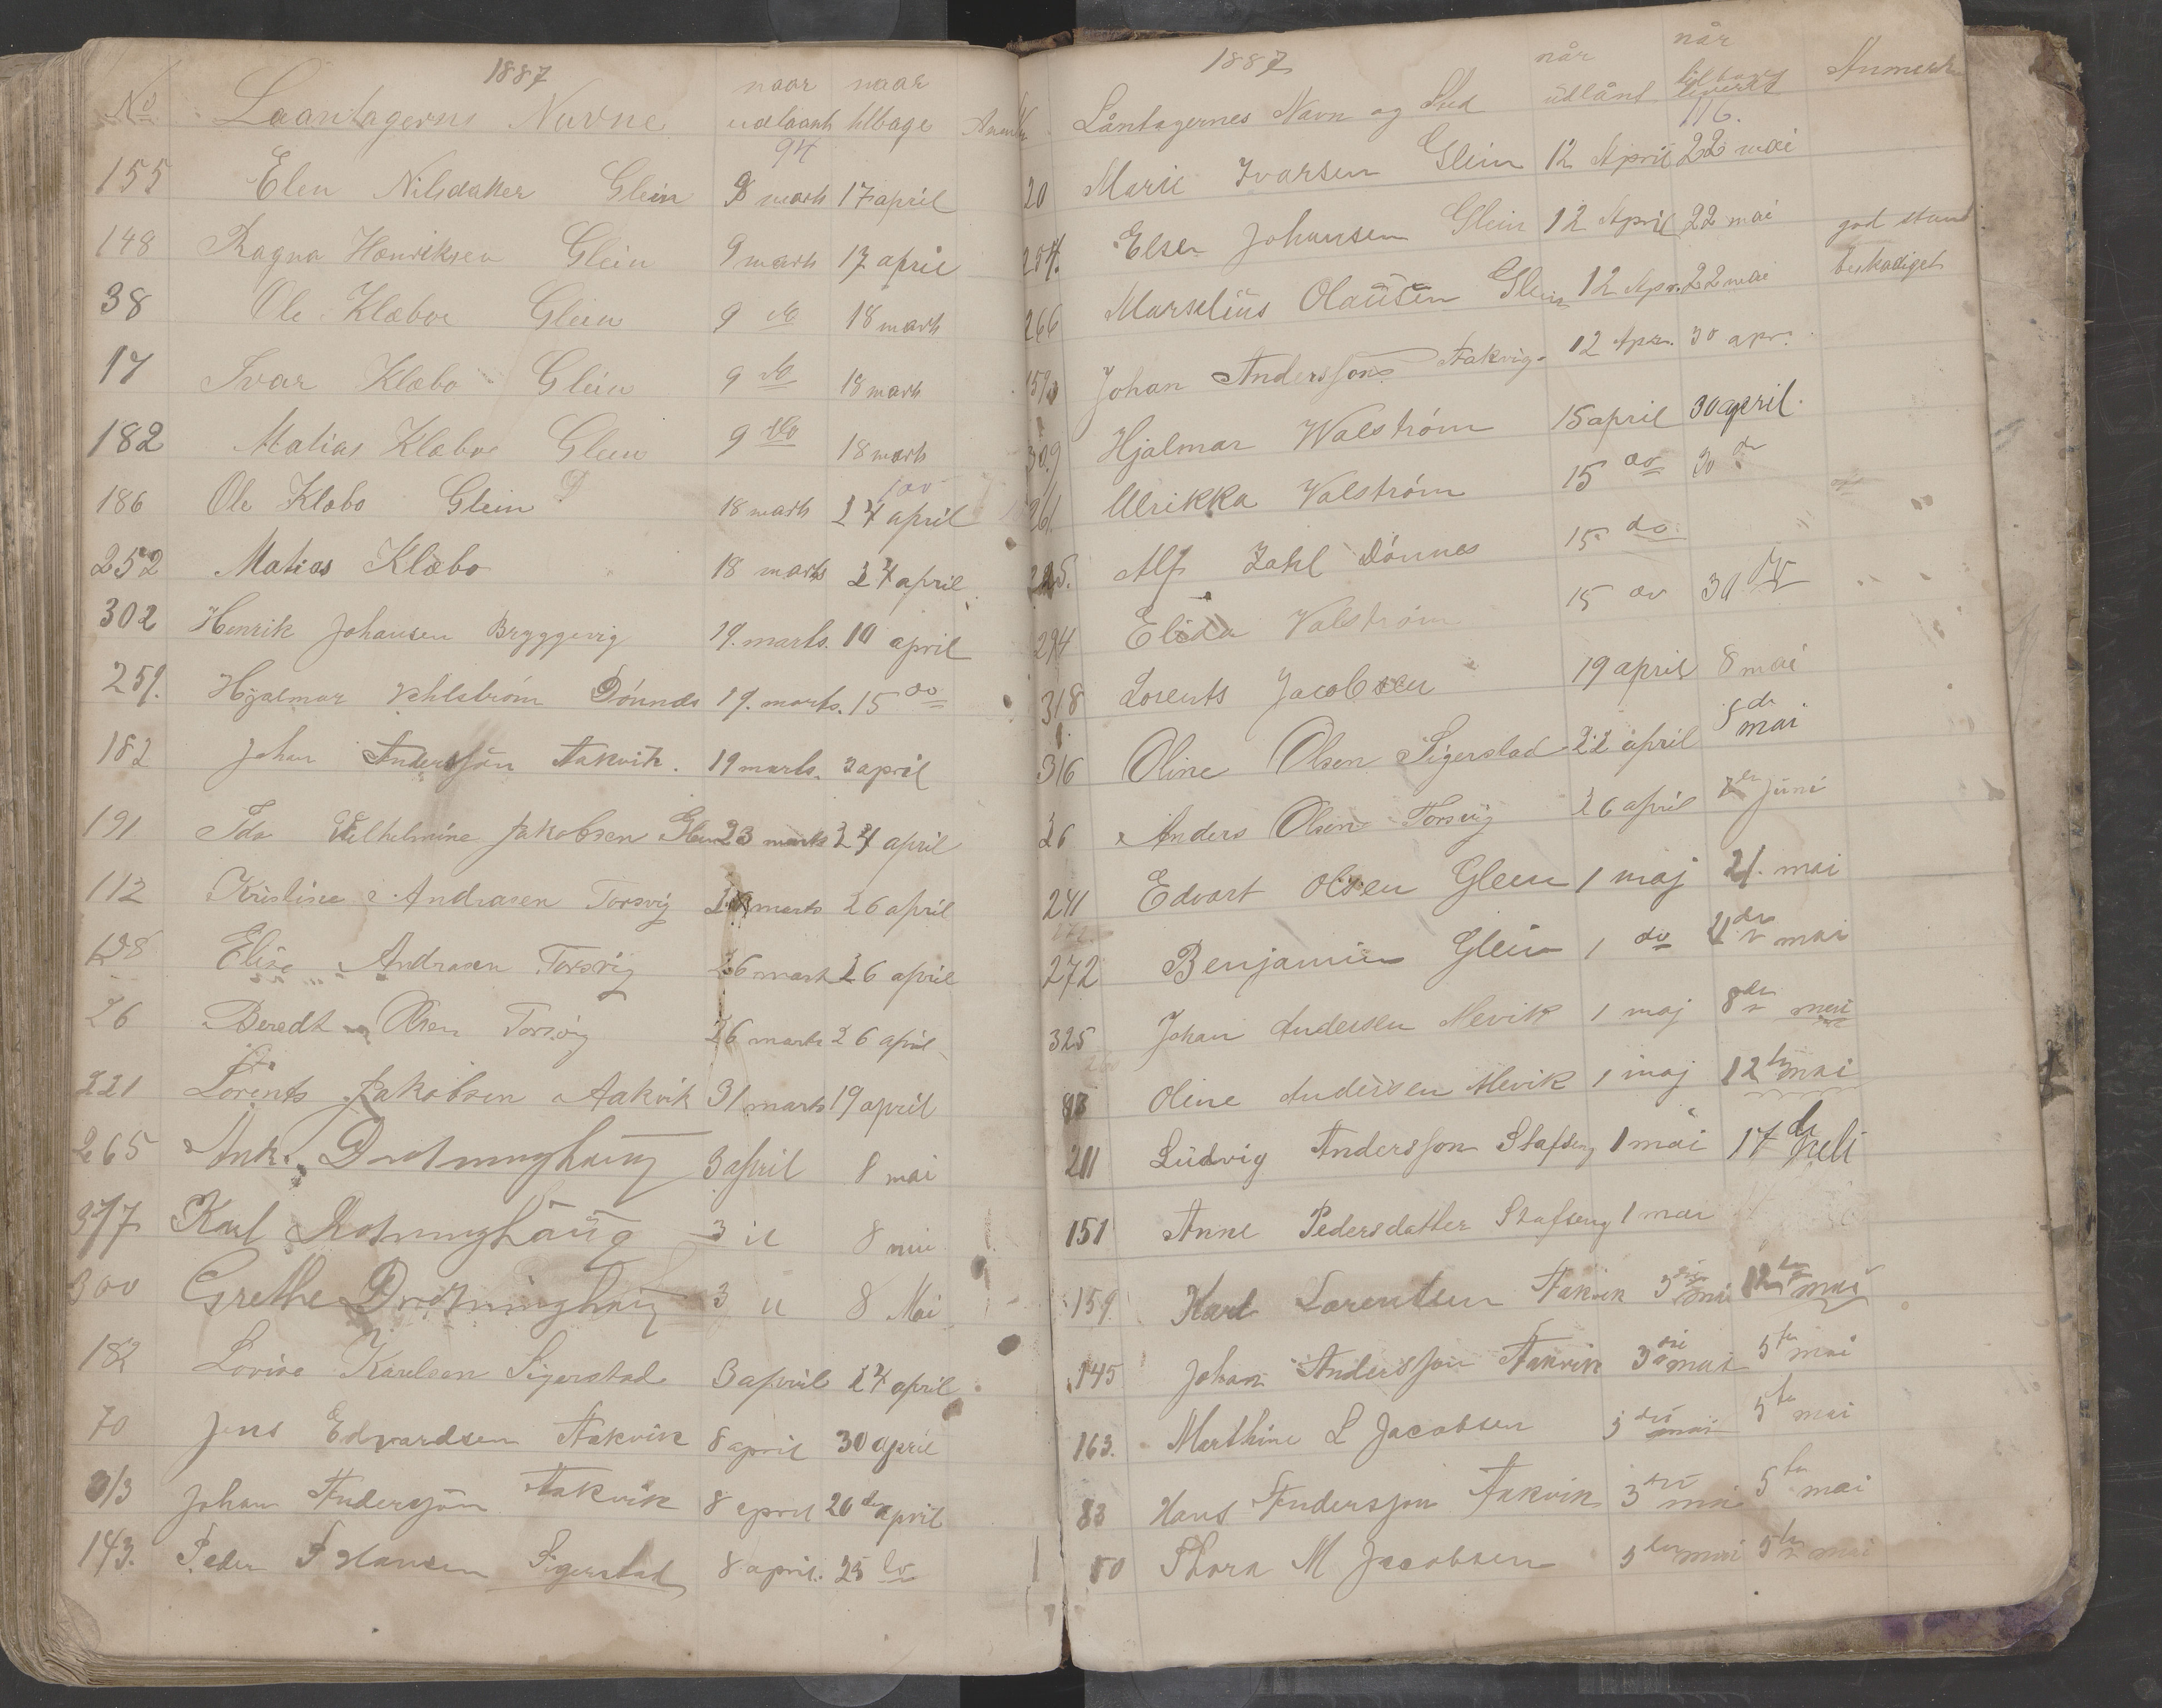 1887
No Laantagerns Navne naar udlaant naar tilbage
94
155 Elen Nilsdatter Glein 9 marts 17 april
148 Ragna Henriksen Glein 9 marts 17 april
38 Ole Klæboe Glein 9 do 18 marts
17 Ivar Klæbo Glein 9 do 18 marts
182 Matias Klæboe Glein 9 do 18 marts
100
186 Ole Klæbo Glein 18 marts 24 april
252 Matias Klæbo 18 marts 24 april
302 Henrik Johansen Bryggevig 19. marts. 10 april
259. Hjalmar Vahlstróm Dónnes 19. marts. 15 do
182 Johan Andersson Aakvik. 19 marts. 3 april
191 Ida Vilhelmine Jakobsen Glein 23 marts 24 april
112 Kristine Andrasen Torsvig marts 26 april
128 Elise Andrasen Torsvig 26 marts 26 april
26 Beredt Olsen Torsvig 26 marts 26 april
221 Lorents Jakobsen Aakvik 31 marts 19 april
265 Dronninghaug 3 april 8 mai
377 Karl Dronninghaug 3 " 8 mai
300 Grethe Dronninghaug 3 " 8 Mai
182 Lovise Karlsen Sigerstad 3 april 24 april
70 Jens Edvardsen Aakvik 8 april 30 april
313 Johan Andersson Aakvik 8 april 26 de april
143. Peder P Hansen Sigerstad 8 april. 25 do
1887
Låntagernes Navn og Sted når udlånt når tilbage leveret Anmerk
116.
20 Marie Ivarsen Glein 12 April 22 mai
204. Elsen Johansen Glein 12 April 22 mai god stand
266 Marselius Olausen Glein 12 Apr. 22 mai beskadiget
159 Johan Andersson Aakvig. 12 Apr. 30 apr.
309 Hjalmar Walstróm 15 april 30 april.
261. Ulrikka Valstróm 15 do 30 do
Alf Zahl Dónnes 15 do
294 Elida Valstróm 15 do 30
318 Lorents Jacobsen 19 april 8 mai
316 Oline Olsen Sigerstad 22 april 5 de mai
26 Anders Olsen Torsvig 26 april juni
241 Edvart Olsen Glein 1 maj 21. mai
272 Benjamin Glein 1 do mai
325 Johan Andersen Nevik 1 maj 8 de mai
83 Oline Andersen Nevik 1 maj 12 te mai
211 Ludvig Andersson Stafseng 1 mai 17 de juli
151 Anne Pedersdatter Stafseng 1 mai
159 Karl Lorentsen Aakvik 3 mai 12 te mai
145 Johan Andersson Aakvik 3 die mai 5 te mai
163. Marthine L Jacobsen 3 die mai 5 te mai
83 Hans Andersson Aakvik 3 die mai 5 te mai
80 Thora M Jacobsen 5 te mai 5 te mai